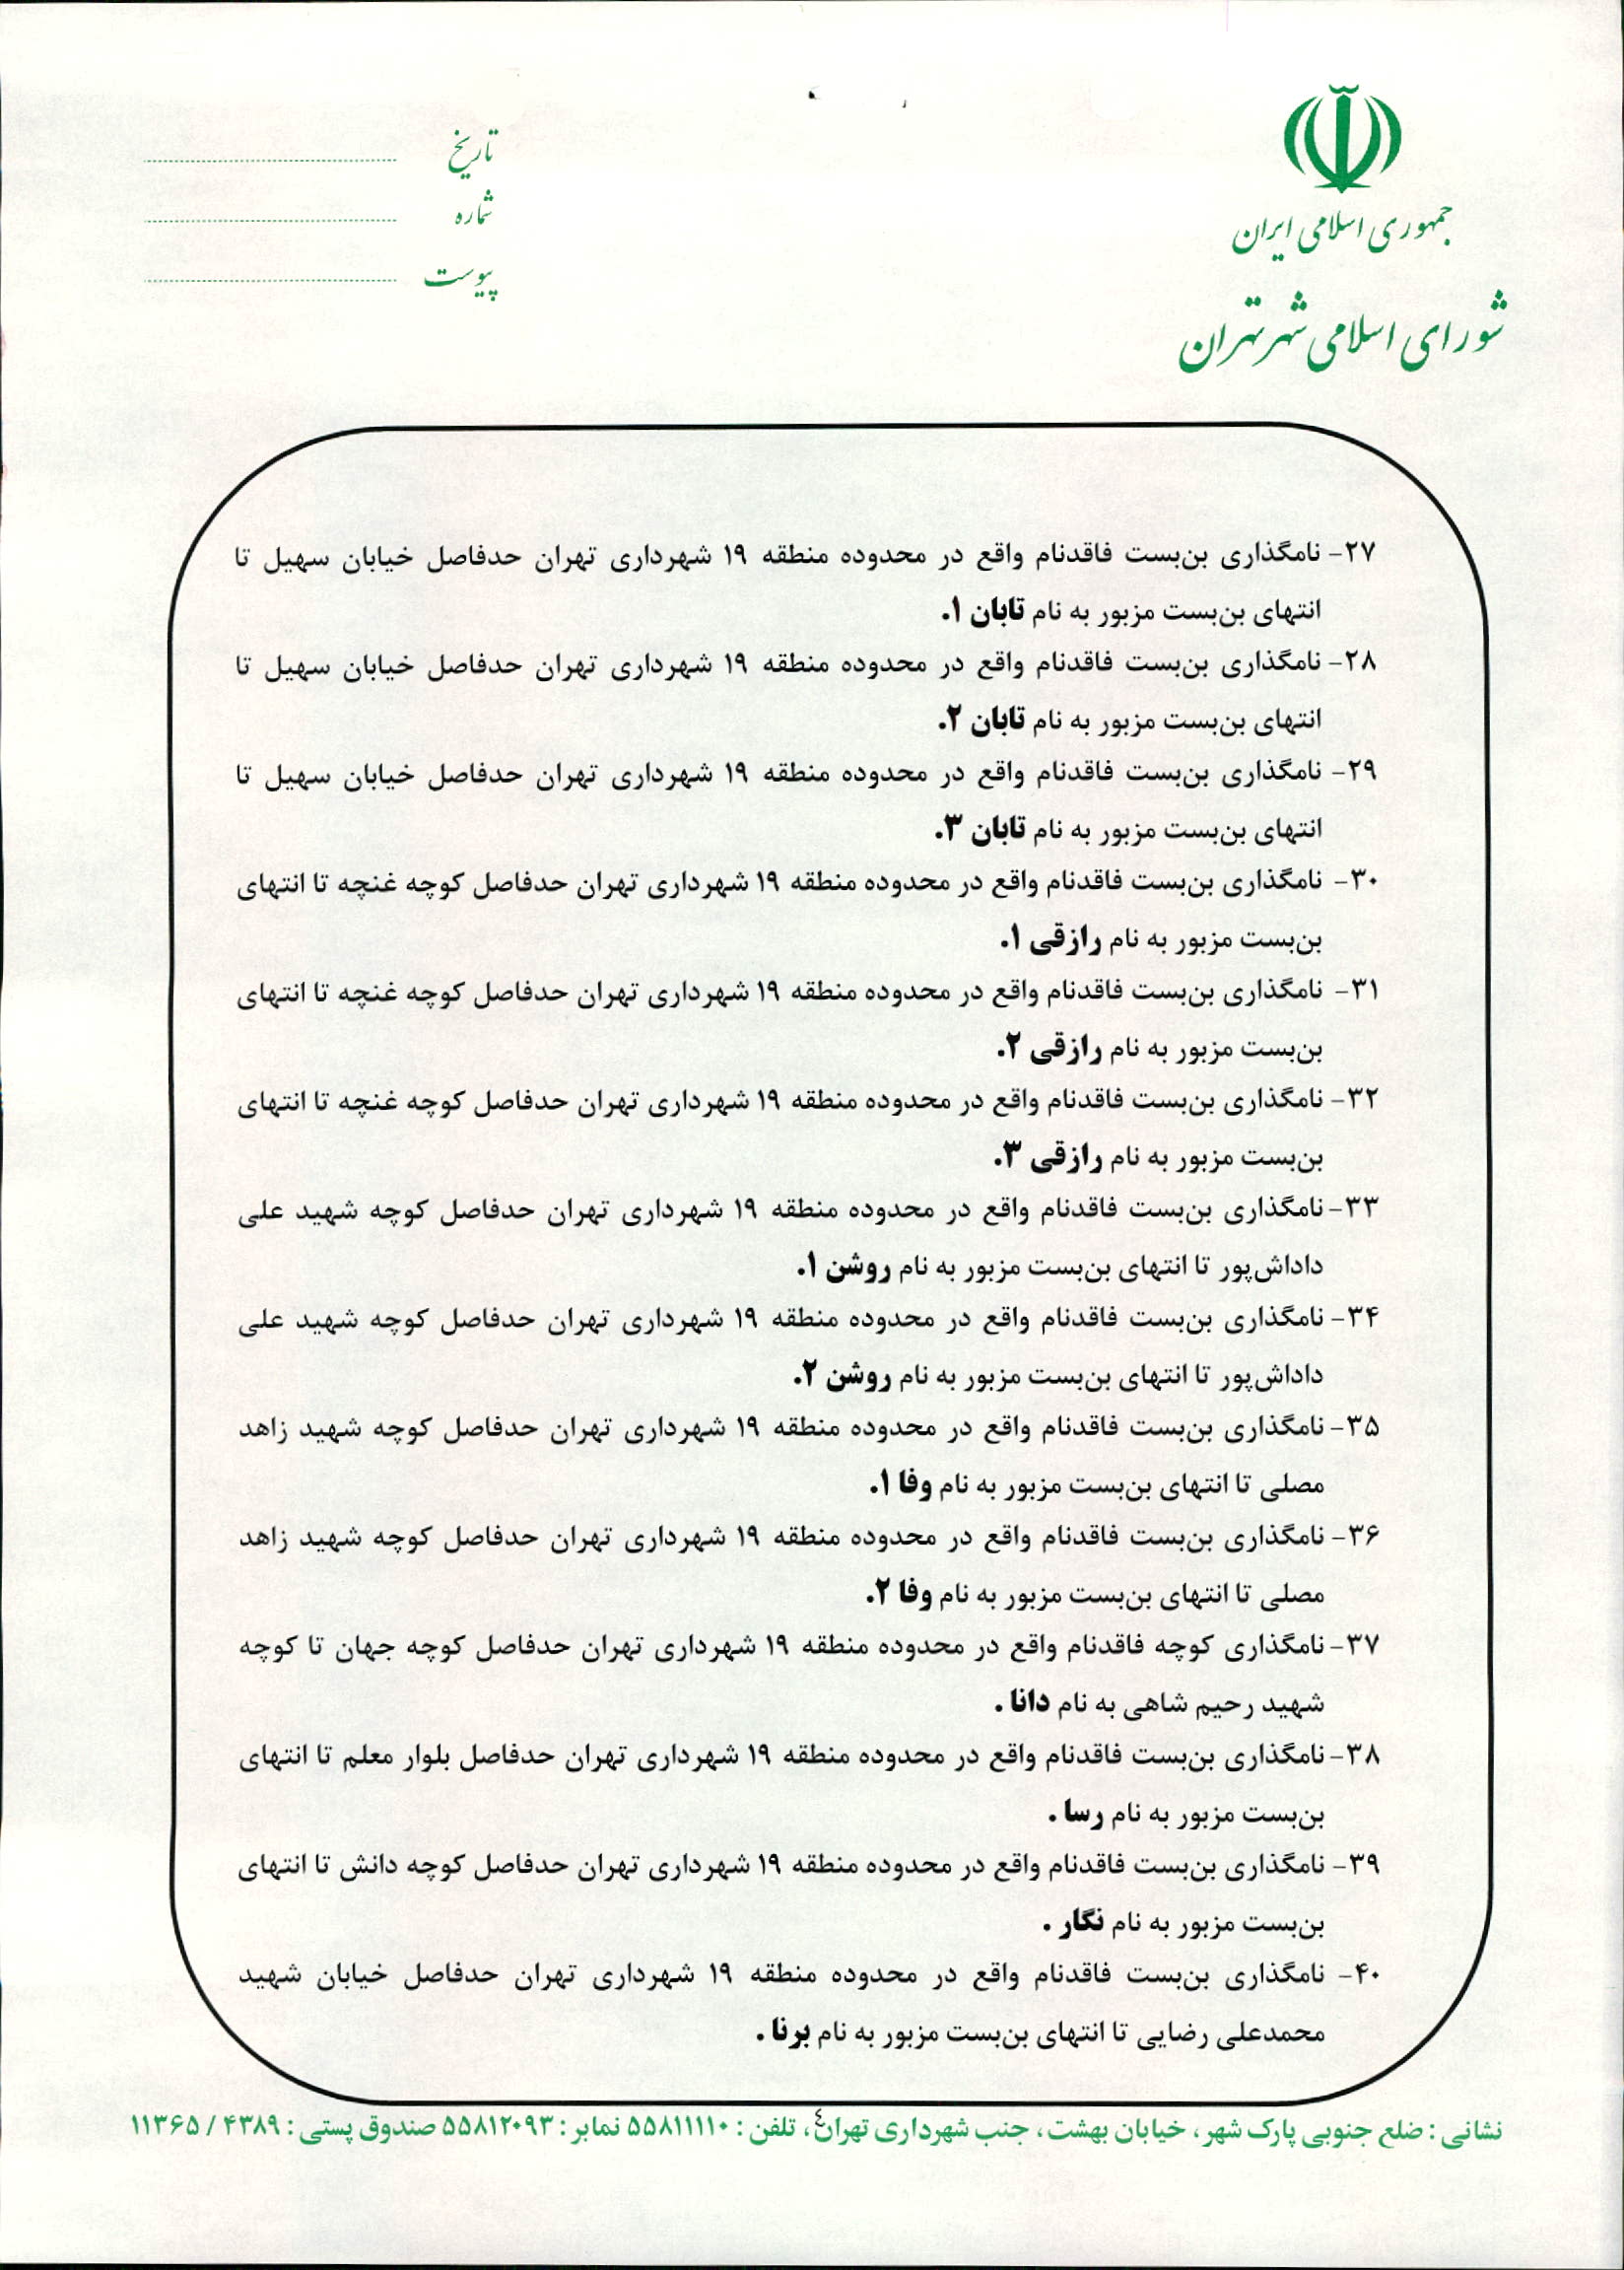 جمهوری اسلامی ایران
شورای اسلامی شهر تهران
تاریخ
شماره
پیوست
۲۷- نامگذاری بن‌بست فاقدنام واقع در محدوده منطقه ۱۹ شهرداری تهران حدفاصل خیابان سهیل تا
انتهای بن‌بست مزبور به نام تابان ۱.
۲۸- نامگذاری بن‌بست فاقدنام واقع در محدوده منطقه ۱۹ شهرداری تهران حدفاصل خیابان سهیل تا
انتهای بن‌بست مزبور به نام تابان ۲.
۲۹- نامگذاری بن‌بست فاقدنام واقع در محدوده منطقه ۱۹ شهرداری تهران حدفاصل خیابان سهیل تا
انتهای بن‌بست مزبور به نام تابان ۳.
۳۰- نامگذاری بن‌بست فاقدنام واقع در محدوده منطقه ۱۹ شهرداری تهران حدفاصل کوچه غنچه تا انتهای
بن‌بست مزبور به نام رازقی ۱.
۳۱- نامگذاری بن‌بست فاقدنام واقع در محدوده منطقه ۱۹ شهرداری تهران حدفاصل کوچه غنچه تا انتهای
بن‌بست مزبور به نام رازقی ۲.
۳۲- نامگذاری بن‌بست فاقدنام واقع در محدوده منطقه ۱۹ شهرداری تهران حدفاصل کوچه غنچه تا انتهای
بن‌بست مزبور به نام رازقی ۳.
۳۳- نامگذاری بن‌بست فاقدنام واقع در محدوده منطقه ۱۹ شهرداری تهران حدفاصل کوچه شهید علی
داداش‌پور تا انتهای بن‌بست مزبور به نام روشن ۱.
۳۴- نامگذاری بن‌بست فاقدنام واقع در محدوده منطقه ۱۹ شهرداری تهران حدفاصل کوچه شهید علی
داداش‌پور تا انتهای بن‌بست مزبور به نام روشن ۲.
۳۵- نامگذاری بن‌بست فاقدنام واقع در محدوده منطقه ۱۹ شهرداری تهران حدفاصل کوچه شهید زاهد
مصلی تا انتهای بن‌بست مزبور به نام وفا ۱.
۳۶- نامگذاری بن‌بست فاقدنام واقع در محدوده منطقه ۱۹ شهرداری تهران حدفاصل کوچه شهید زاهد
مصلی تا انتهای بن‌بست مزبور به نام وفا ۲.
۳۷- نامگذاری کوچه فاقدنام واقع در محدوده منطقه ۱۹ شهرداری تهران حدفاصل کوچه جهان تا کوچه
شهید رحیم شاهی به نام دانا .
۳۸- نامگذاری بن‌بست فاقدنام واقع در محدوده منطقه ۱۹ شهرداری تهران حدفاصل بلوار معلم تا انتهای
بن‌بست مزبور به نام رسا .
۳۹- نامگذاری بن‌بست فاقدنام واقع در محدوده منطقه ۱۹ شهرداری تهران حدفاصل کوچه دانش تا انتهای
بن‌بست مزبور به نام نگار .
۴۰- نامگذاری بن‌بست فاقدنام واقع در محدوده منطقه ۱۹ شهرداری تهران حدفاصل خیابان شهید
محمدعلی رضایی تا انتهای بن‌بست مزبور به نام برنا .
٤
نشانی : ضلع جنوبی پارک شهر ، خیابان بهشت ، جنب شهرداری تهران ، تلفن : ۵۵۸۱۱۱۱۰ نمابر : ۵۵۸۱۲۰۹۳ صندوق پستی : ۴۳۸۹ / ۱۱۳۶۵